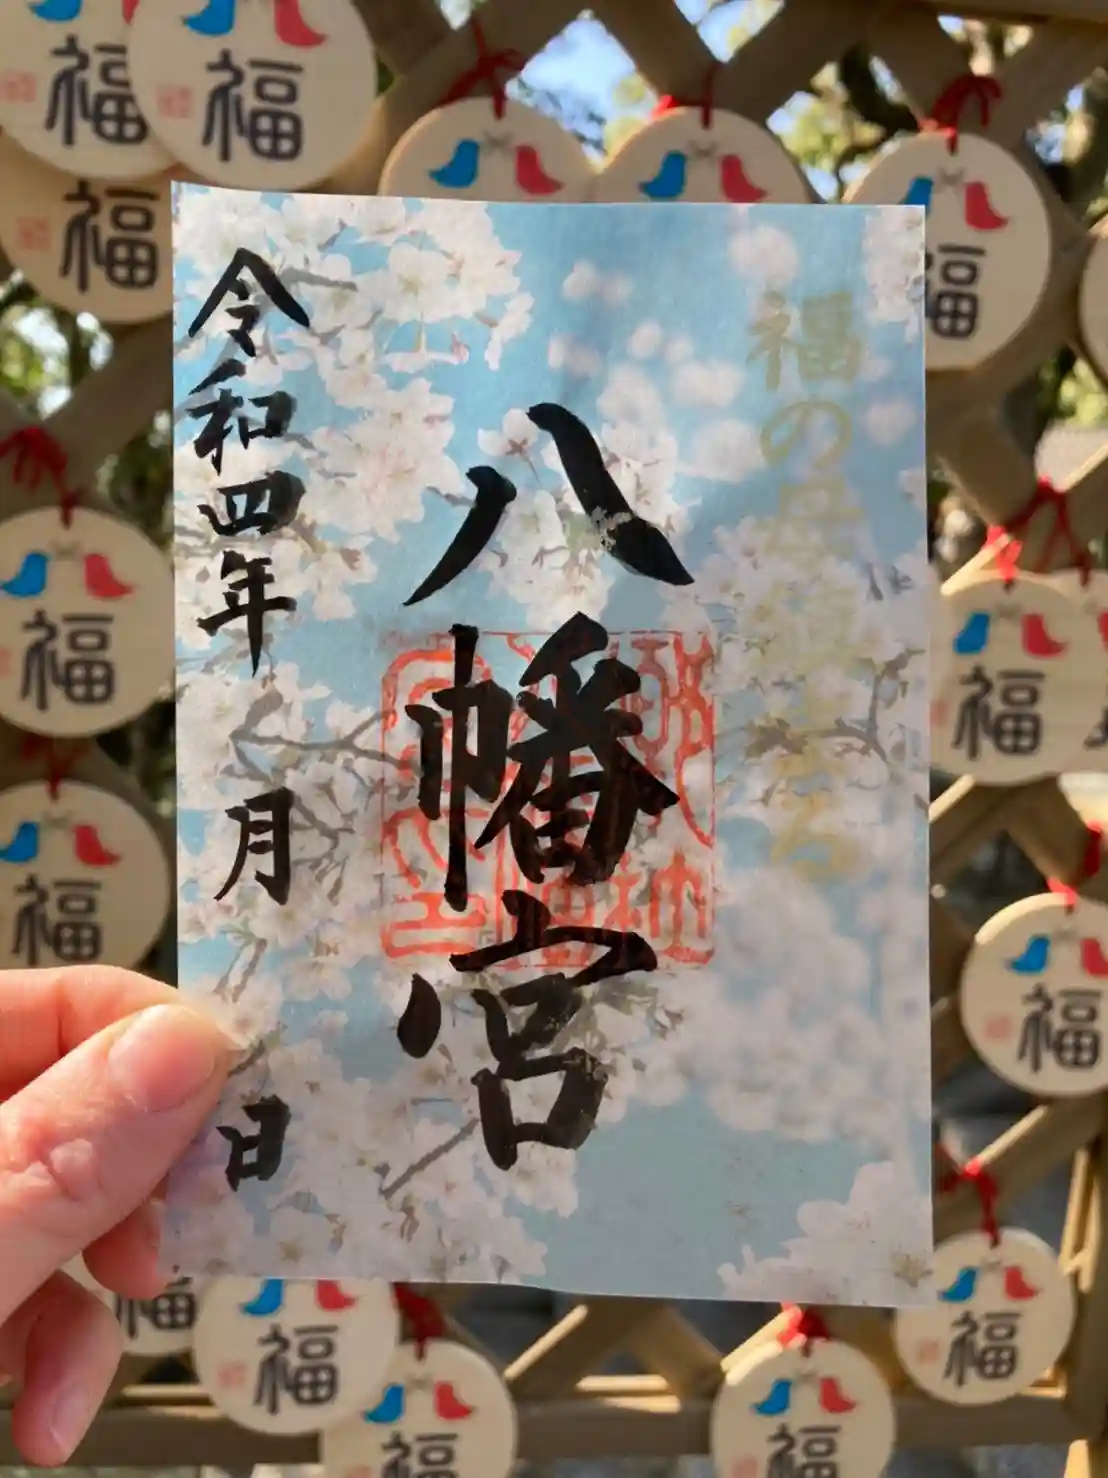 福の
八幡宮
令和四年 月 日
福
福
福
福
福
福
福
福
福
福
福
福